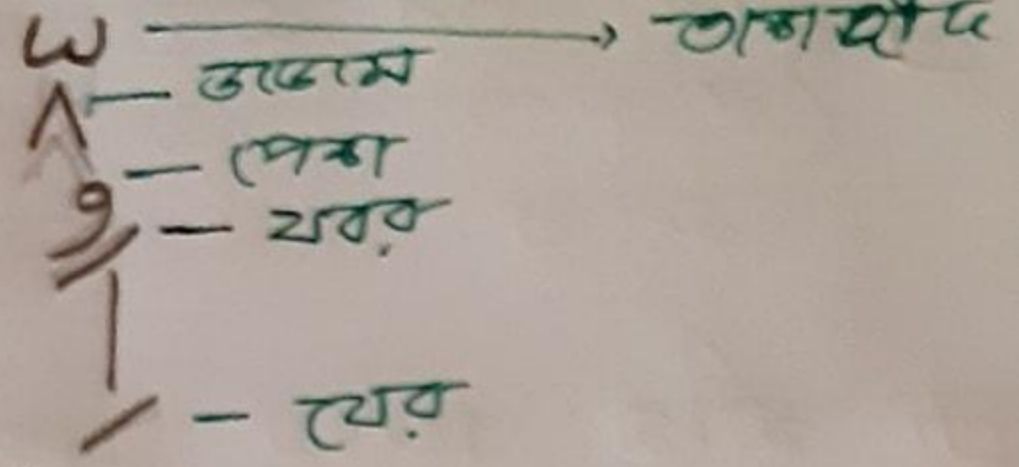 তাশদীদ
জজম
পেশ
যবর
যের